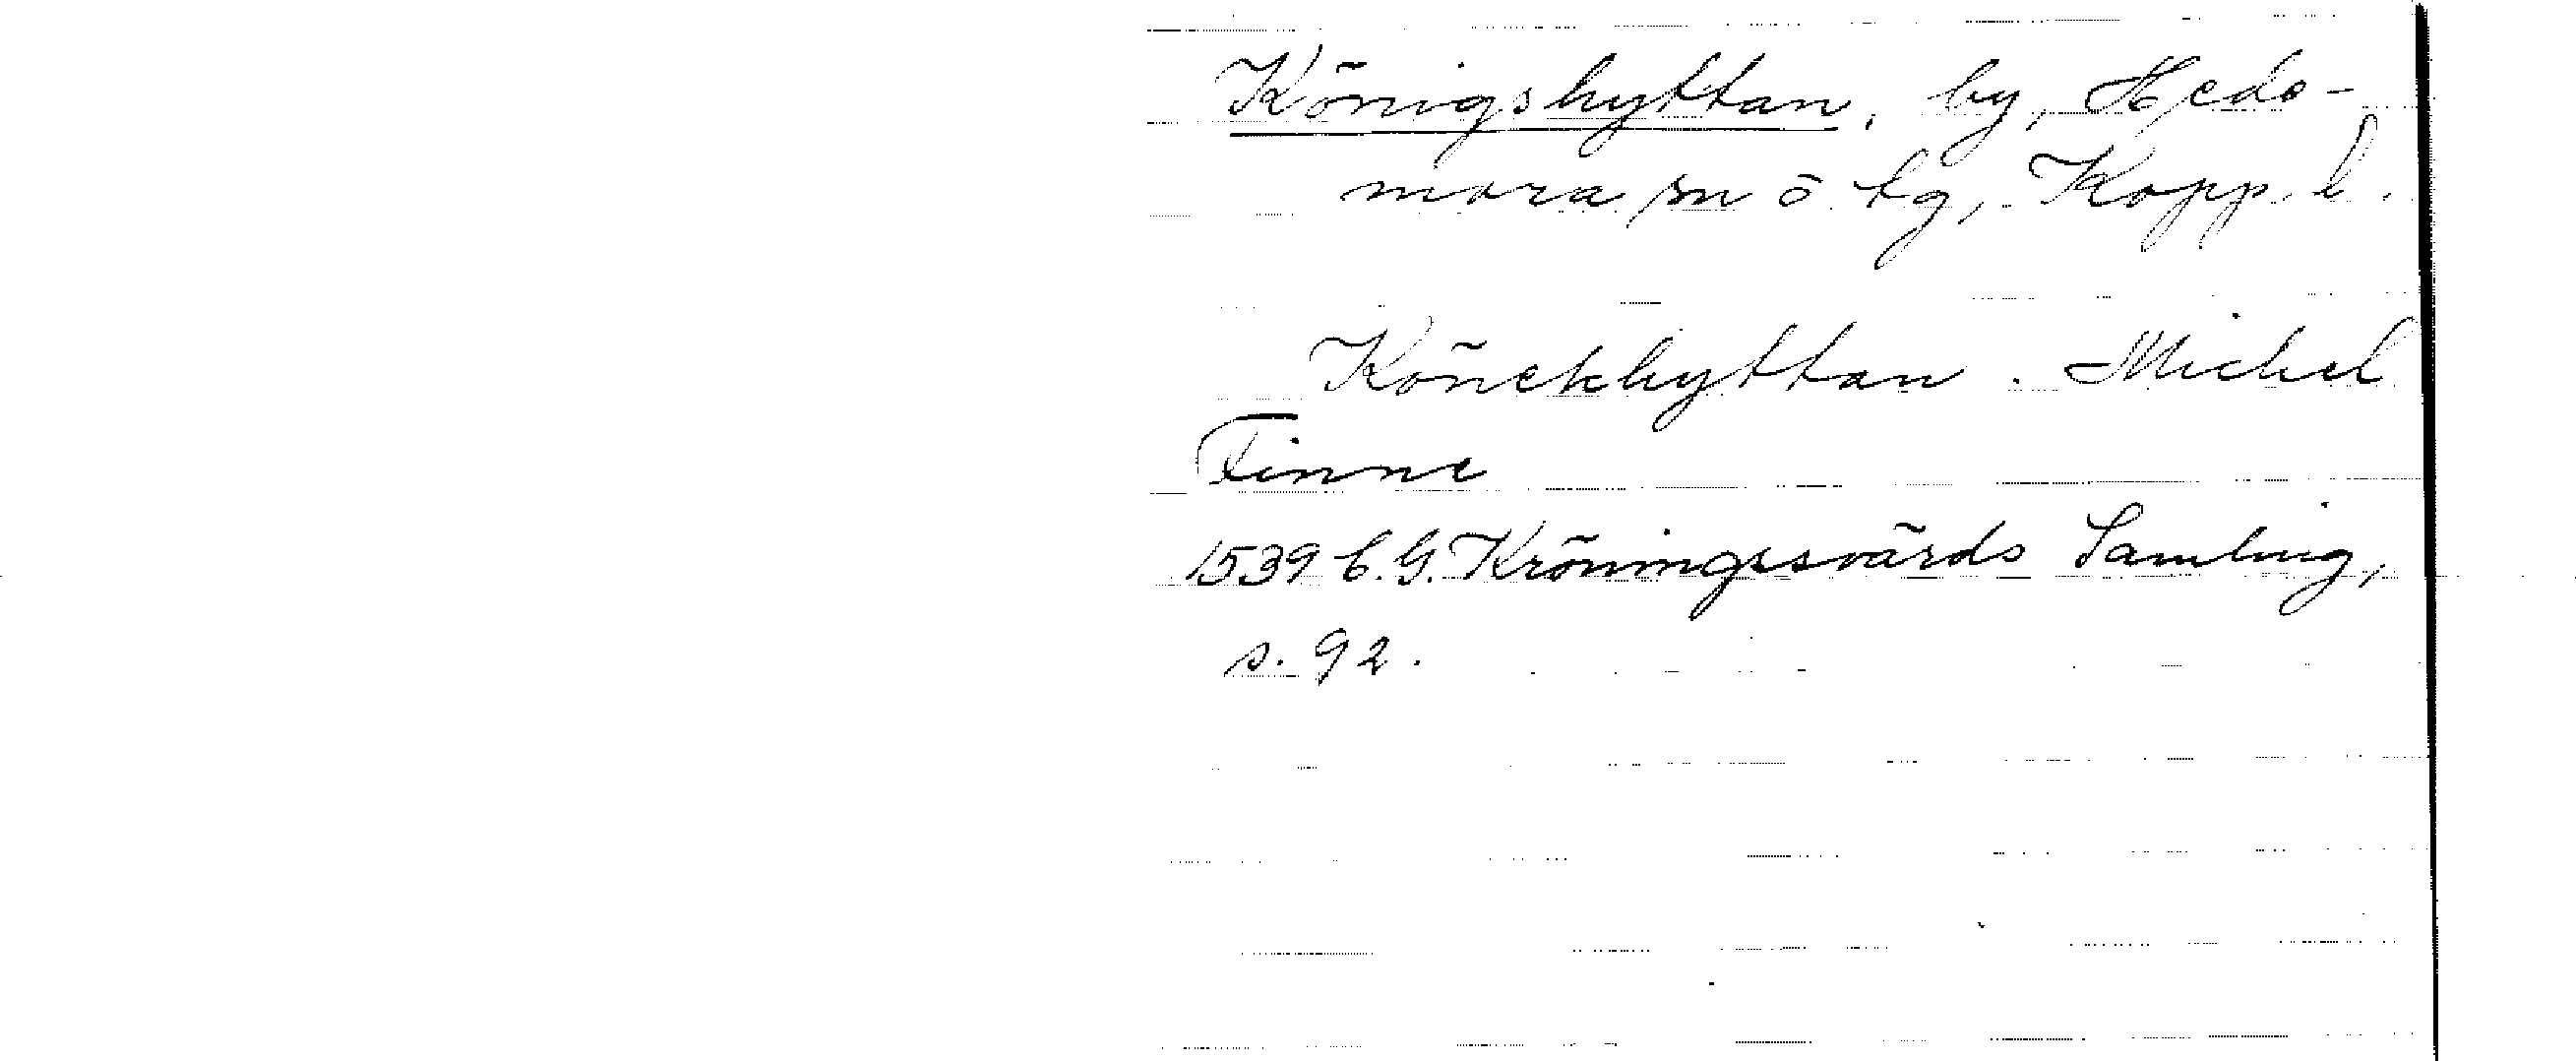 Königshyttan, by, Hede-
mora sn o. tg, Kopp. l.
Könekhyttan. Michel
Finne
1539 C.G. Kröningssvärds Samling,
s. 92.